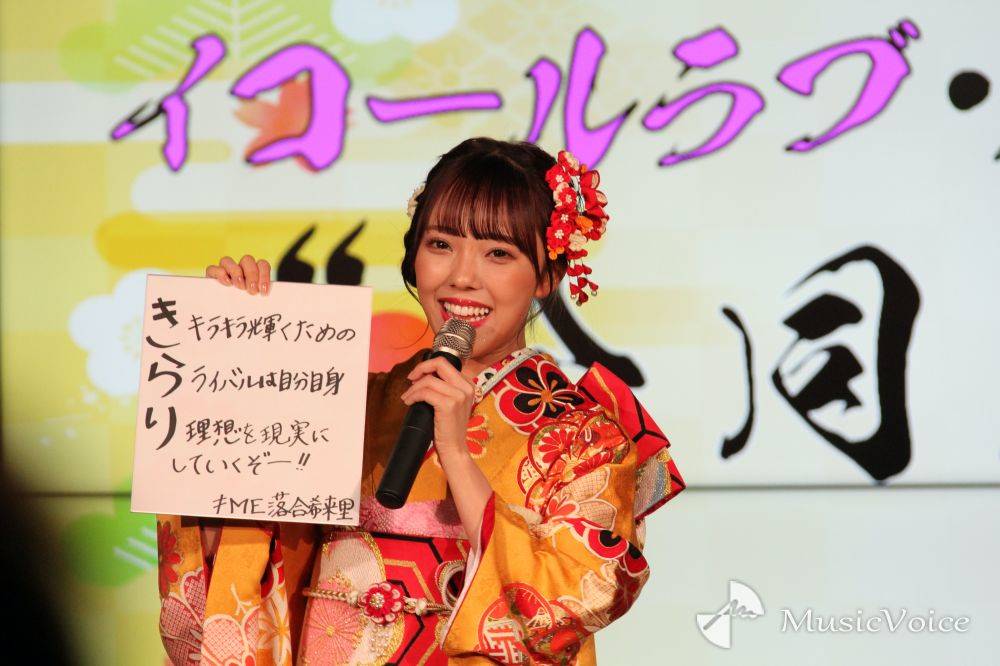 イコールラブ・
“
同
きらり
キラキラ輝くための
ライバルは自分自身
理想を現実に
していくぞー!!
≠ME 落合希来里
MusicVoice